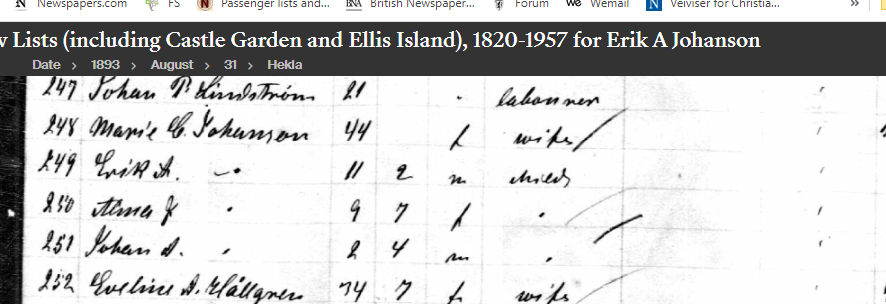 Newspapers.com FS Passenger lists and... BNA British Newspaper... Forum we Wemail N Veiviser for Christia... »
v Lists (including Castle Garden and Ellis Island), 1820-1957 for Erik A Johanson
Date > 1893 > August > 31 > Hekla
247 Johan P. Lindström 21 " labourer
248 Marie C. Johanson 44 f wife
249 Erik A. " 11 2 m child
250 Alma J " 9 7 f "
251 Johan A. " 2 4 m "
252 Eveline A. Hällgren 34 7 f wife